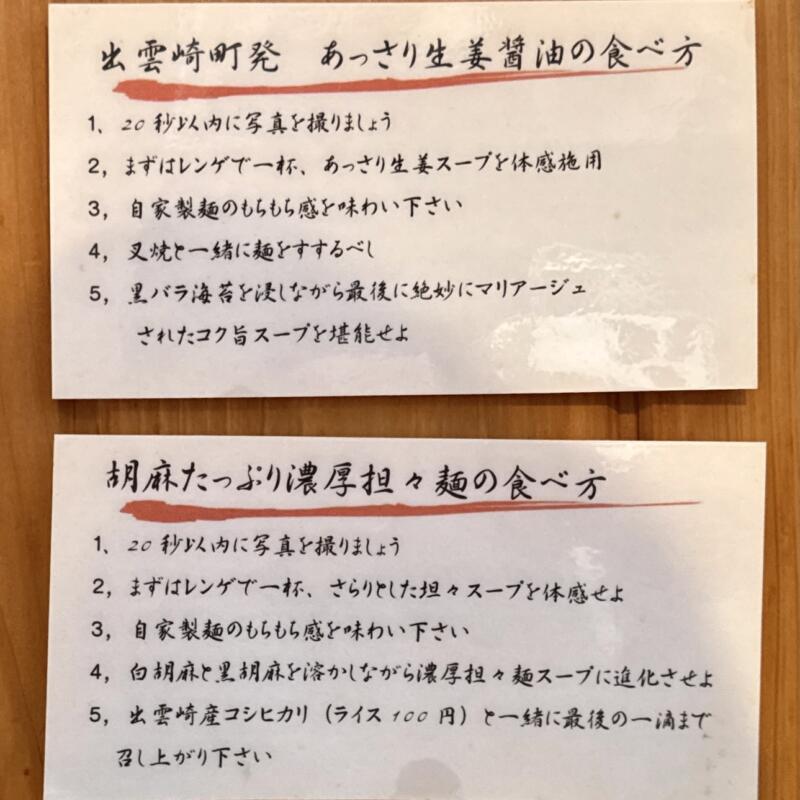 出雲崎町発　あっさり生姜醤油の食べ方
1、20秒以内に写真を撮りましょう
2，まずはレンゲで一杯、あっさり生姜スープを体感施用
3，自家製麺のもちもち感を味わい下さい
4，叉焼と一緒に麺をすするべし
5，黒バラ海苔を浸しながら最後に絶妙にマリアージュ
されたコク旨スープを堪能せよ
胡麻たっぷり濃厚担々麺の食べ方
1、20秒以内に写真を撮りましょう
2，まずはレンゲで一杯、さらりとした坦々スープを体感せよ
3，自家製麺のもちもち感を味わい下さい
4，白胡麻と黒胡麻を溶かしながら濃厚担々麺スープに進化させよ
5，出雲崎産コシヒカリ（ライス100円）と一緒に最後の一滴まで
召し上がり下さい